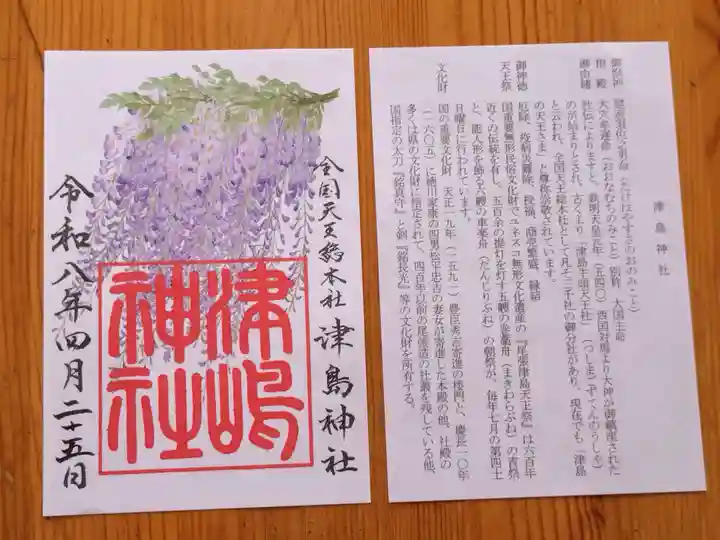 全国天王総本社 津島神社
津嶋
神社
令和八年四月二十五日
津島神社
御祭神 建速須佐之男命(たけはやすさのおのみこと)
相殿 大穴牟遅命(おおなむちのみこと)別称 大国主命
御由緒 社伝によりますと、欽明天皇元年(五四〇)西国対馬より大神が御鎮座された
のが始まりとされ、古くより「津島牛頭天王社」(つしまごずてんのうしゃ)
と云われ、全国天王総本社として凡そ三千社の御分社があり、現在でも「津島
の天王さま」と尊称崇敬されています。
御神徳 厄除、疫病災難除、授福、商売繁盛、縁結
天王祭 国重要無形民俗文化財でユネスコ無形文化遺産の『尾張津島天王祭』は六百年
近くの伝統を有し、五百余の提灯を灯す五艘の巻藁舟(まきわらぶね)の宵祭
と、能人形を飾る六艘の車楽舟(だんじりぶね)の朝祭が、毎年七月の第四土
日曜日に行われています。
文化財 国の重要文化財 天正一九年(一五九一)豊臣秀吉寄進の楼門と、慶長一〇年
(一六〇五)に徳川家康の四男松平忠吉の妻女が寄進した本殿の他、社殿の
多くは県の文化財に指定されて、四百年以前の尾張造の社叢を残している他、
国指定の太刀『銘真守』と剣『銘長光』等の文化財を所有する。